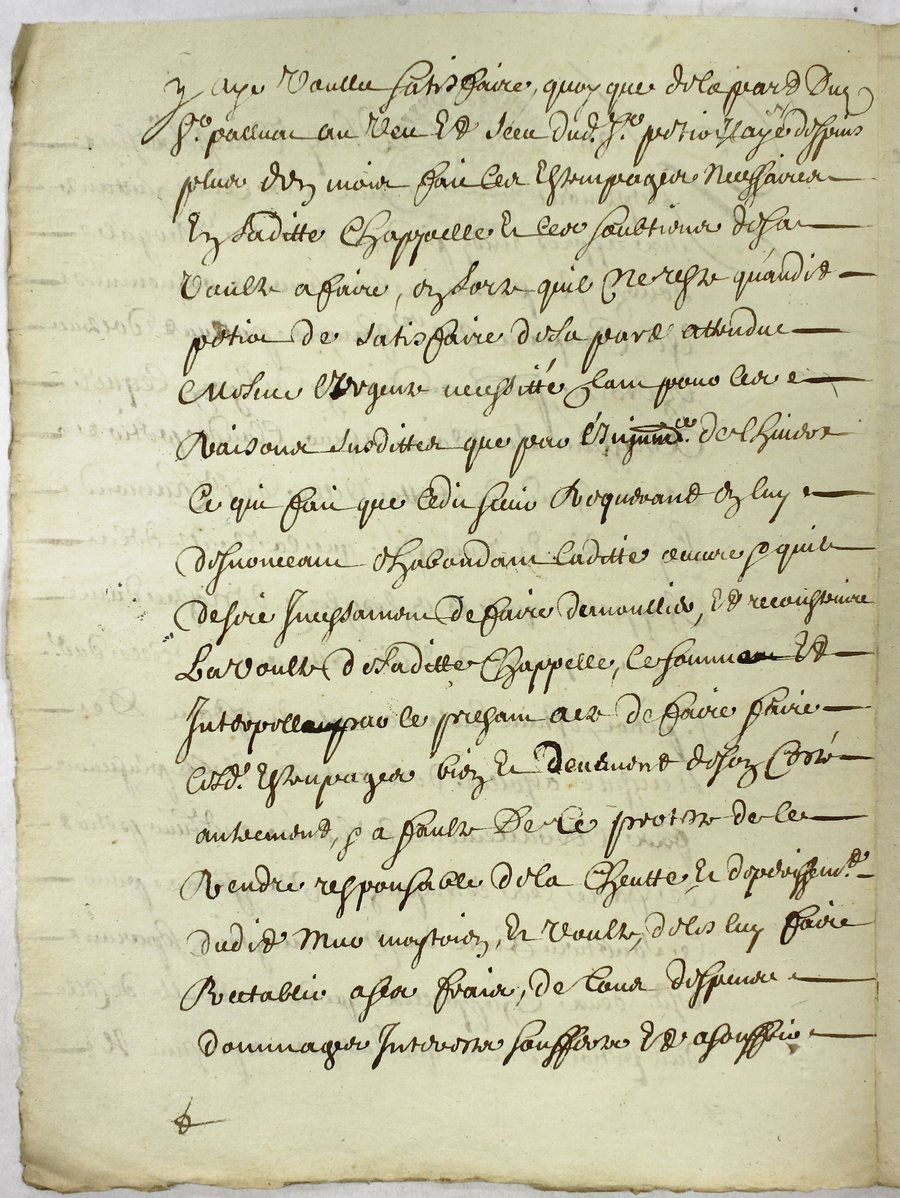 y aye voullu satisfaire, quoy que de la part Dud
Sr. palluat au veu Et sceu dud. Sr. petiot ayt despuis
plus d'un mois fait les Estempages Necessaires
En Laditte Chappelle Et les soubtiens de sa
Voulte a faire, en sorte quil Ne reste qu'audit
petiot de satisfaire de sa part attendue
mesme l'Urgente necessitté tant pour les
Raisons susdittes que par de lhiver
Ce qui fait que ledit sieur Requerant en luy
desnonceant dhabondant laditte œuvre p quil
desire Incessament de faire demoullir, Et reconstruire
La voulte de Laditte Chappelle, le somme Et
Interpelle par le present acte de faire faire
lesd. Estempages bien Et Deuement de son Costé
autrement, p a faulte De Ce proteste de le
Rendre responsable de la Cheutte Et deperissemt.
dudit Mur mestoien, Et voulte, de les luy faire
Restablir a ses frais, de tous despens
dommages Interests soufferts Et a souffrir